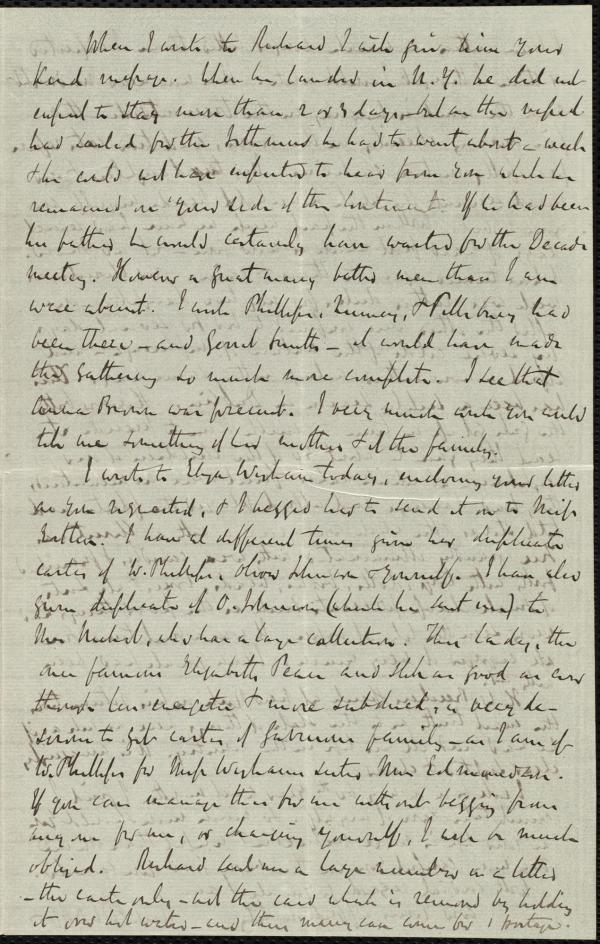 When I write to Richard I will give him your
kind message. When he landed in N.Y. he did not
expect to stay more than 2 or 3 days, but as the vessel
had sailed for the Isthmus he had to wait about a week
& he could not have expected to hear from you while he
remained on your side of the Continent. If he had been
his father he would certainly have waited for the Decade
meeting. However a great many better men than I am
were absent. I wish Phillips, Quincy, & Pillsbury had
been there - and Gerrit Smith - it would have made
the gathering so much more complete. I see that
Anna Brown was present. I very much wish you could
tell me something of her mother & of the family.
I wrote to Eliza Wigham today, enclosing your letter
as you requested, & I begged her to send it on to Miss
Estlin. I have at different times given her duplicate
cartes of W. Phillips, Oliver Johnson & yourself. I have also
given duplicate of O. Johnson (which he sent me) to
Mrs Nichol, who has a large collection. This lady, the
once famous Elizabeth Pease and still as good as ever
though less energetic & more subdued, is very de-
sirous to get cartes of Garrison family - as I am of
W. Phillips for Miss Wigham's sister Mrs Edmundson.
If you can manage this for me without begging from
any one for me, or charging yourself, I will be much
obliged. Richard sent me a large number in a letter
- the carte only - not the card which is removed by holding
it over hot water - and thus many can come for 1 postage.